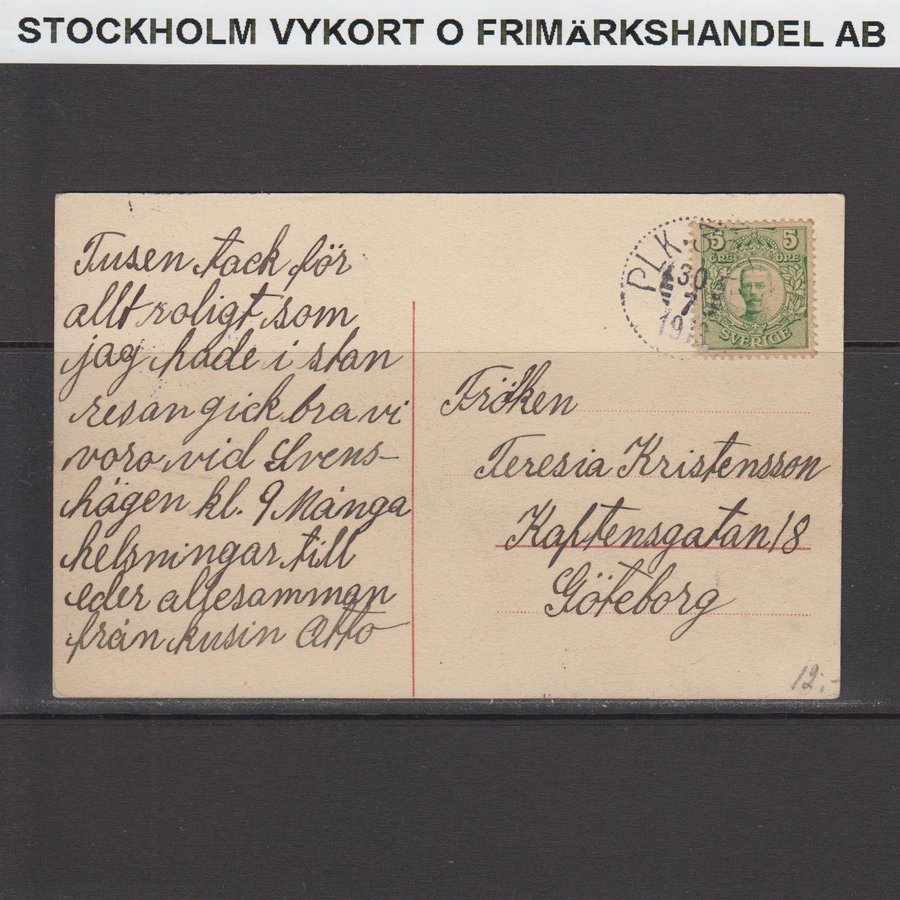 STOCKHOLM VYKORT O FRIMÄRKSHANDEL AB
Tusen tack för
allt roligt som
jag hade i stan
resan gick bra vi
voro vid Svens-
hägen kl. 9 Många
helsningar till
eder allesamman
från kusin Otto
PLK.
30
7
5 5
ÖRE ÖRE
SVERIGE
Fröken
Teresia Kristensson
Kaptensgatan 18
Göteborg
12:-